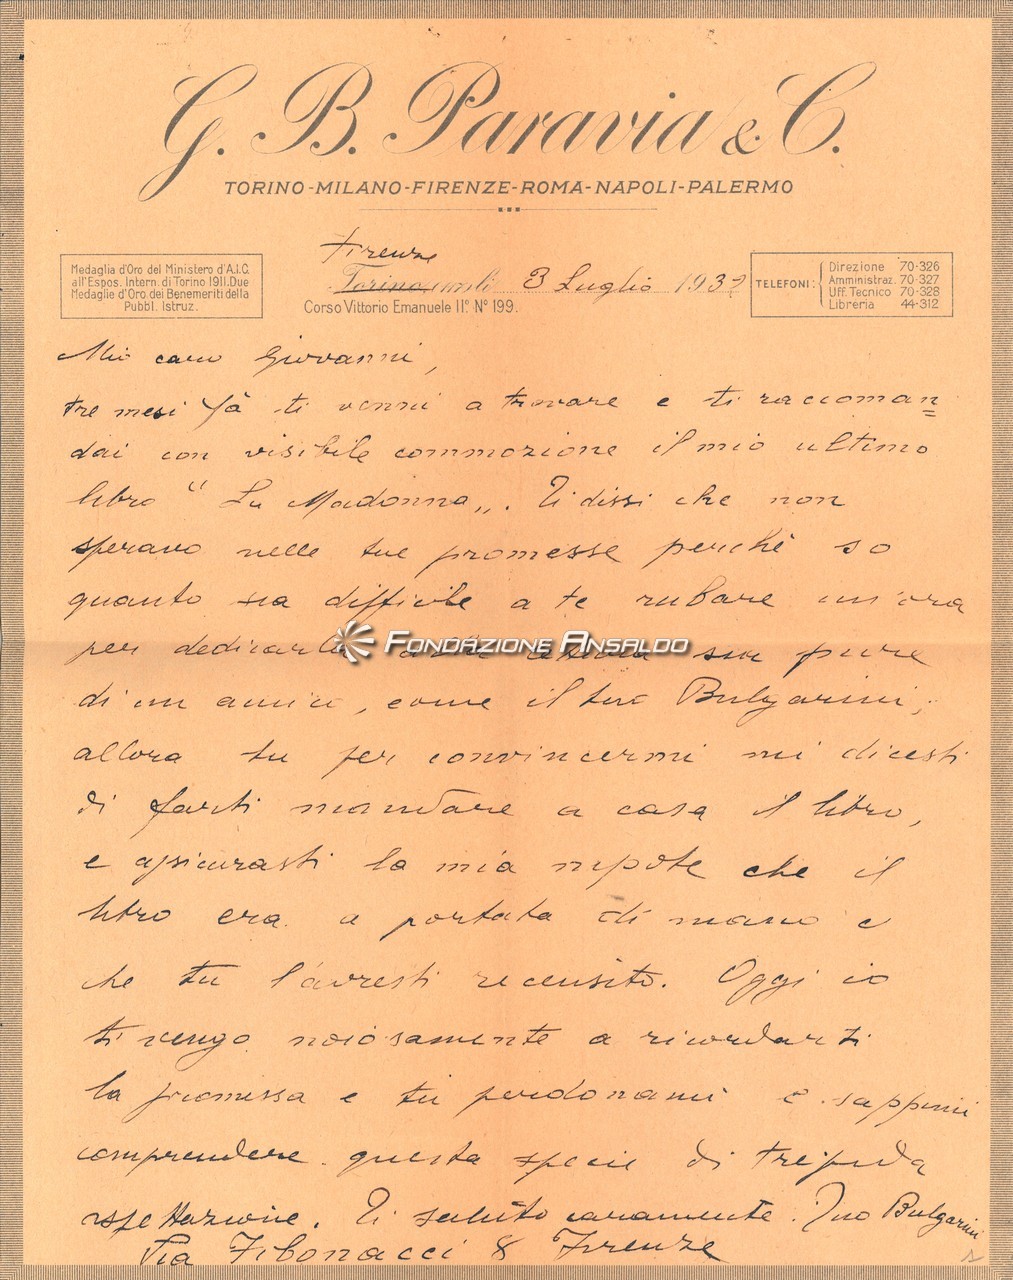 G. B. Paravia & C.
TORINO-MILANO-FIRENZE-ROMA-NAPOLI-PALERMO
Medaglia d'Oro del Ministero d'A.I.C.
all'Espos. Intern. di Torino 1911. Due
Medaglie d'Oro dei Benemeriti della
Pubbl. Istruz.
Firenze
Torino, 3 Luglio 1937
Corso Vittorio Emanuele II° N° 199.
TELEFONI:
Direzione 70-326
Amministraz. 70-327
Uff. Tecnico 70-328
Libreria 44-312
Mio caro Giovanni,
tre mesi fà ti venni a trovare e ti raccoman=
dai con visibile commozione il mio ultimo
libro " La Madonna„. Ti dissi che non
speravo nelle tue promesse perchè so
quanto sia difficile a te rubare un'ora
per dedicarla sia pure
di un amico, come il tuo Bulgarini;
allora tu per convincermi mi dicesti
di farti mandare a casa il libro,
e assicurasti la mia nipote che il
libro era a portata di mano e
che tu l'avresti recensito. Oggi io
ti vengo noiosamente a ricordarti
la promessa e tu perdonami e sappimi
comprendere questa specie di trepida
aspettazione. Ti saluto caramente. Tuo Bulgarini
Via Fibonacci 8 Firenze
FONDAZIONE ANSALDO